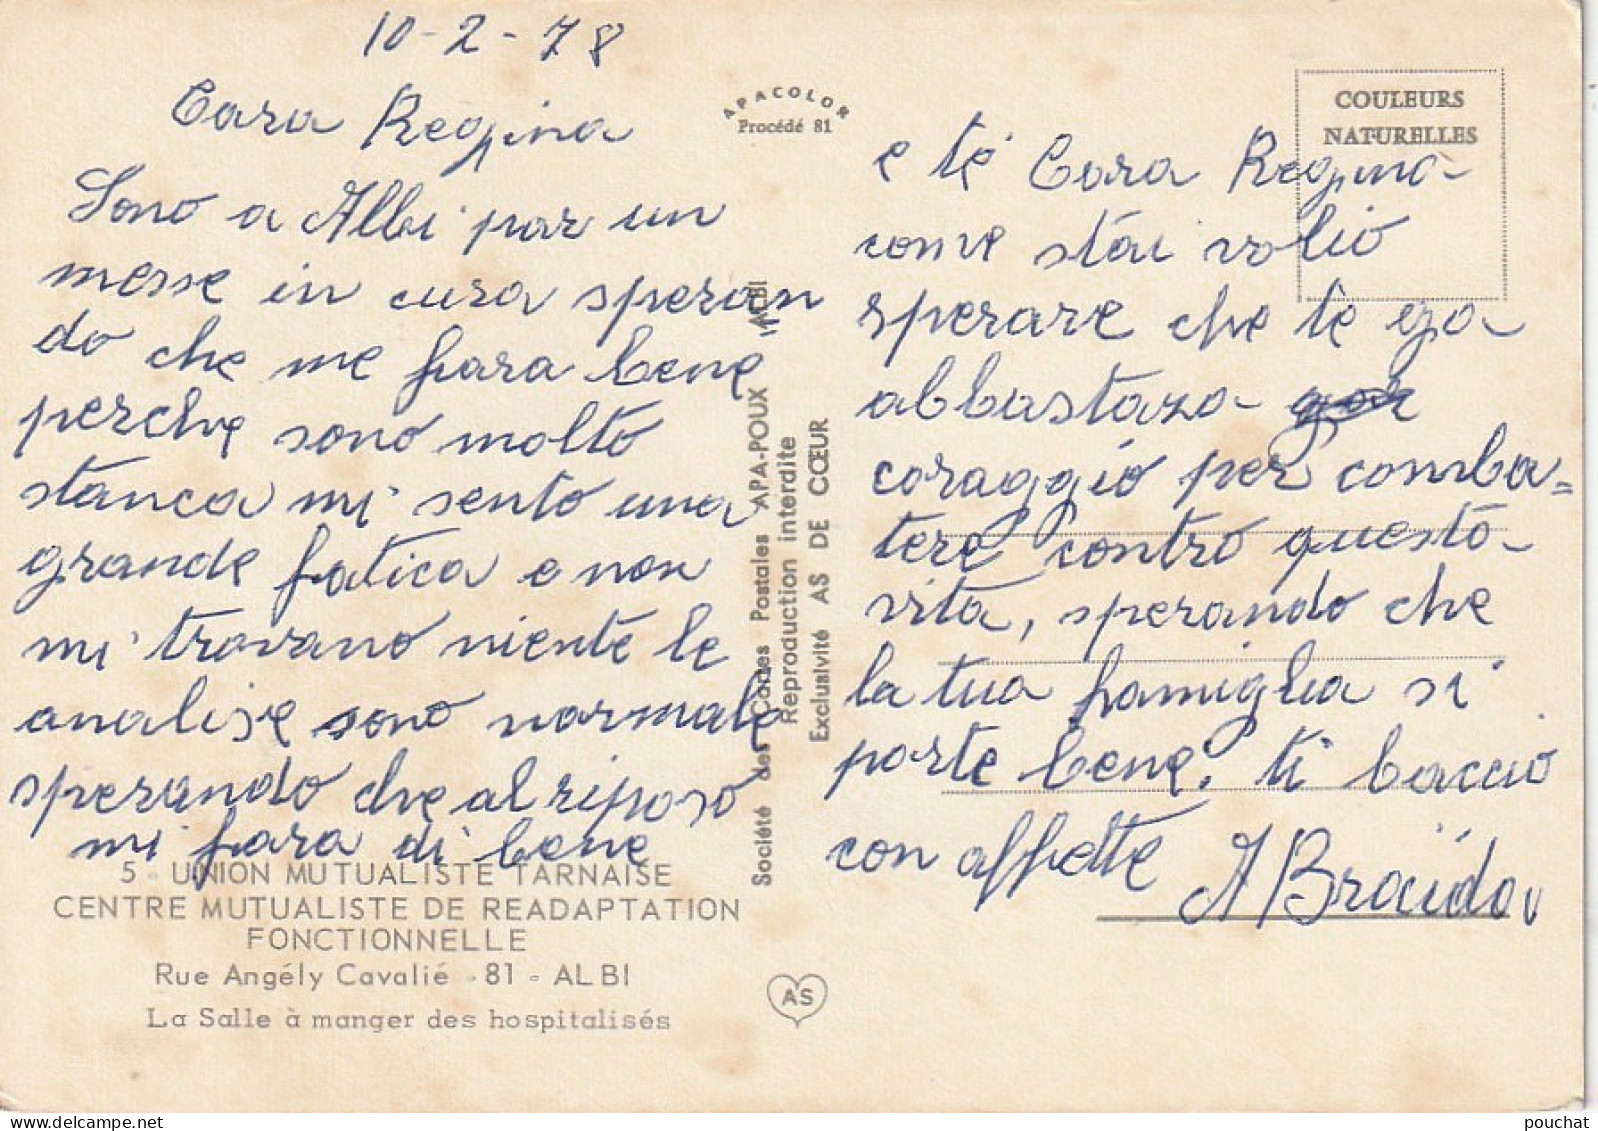 10-2-78
Cara Regina
Sono a Albi par un
messe in cura speran
do che me fara bene
perche sono molto
stanca mi sento una
grande fatica e non
mi trovano niente le
analise sono normale
sperando che al riposo
mi fara di bene
5 - UNION MUTUALISTE TARNAISE
CENTRE MUTUALISTE DE READAPTATION
FONCTIONNELLE
Rue Angély Cavalié - 81 - ALBI
La Salle à manger des hospitalisés
APACOLOR
Procédé 81
Société des Cartes Postales APA-POUX ALBI
Reproduction interdite
Exclusivité AS DE CŒUR
AS
COULEURS
NATURELLES
e te Cara Regina
come stai volio
sperare che te
abbastaza
coraggio per comba=
tere contro questo
vita, sperando che
la tua famiglia si
porte bene. ti baccio
con affette
A Braida
pouchat